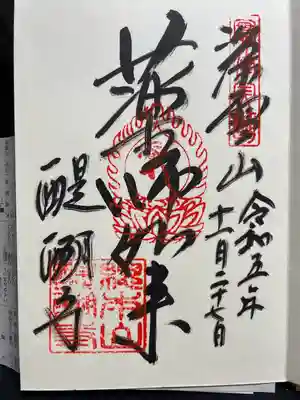 深雪山
令和五年
十一月二十七日
薬師如来
醍醐寺